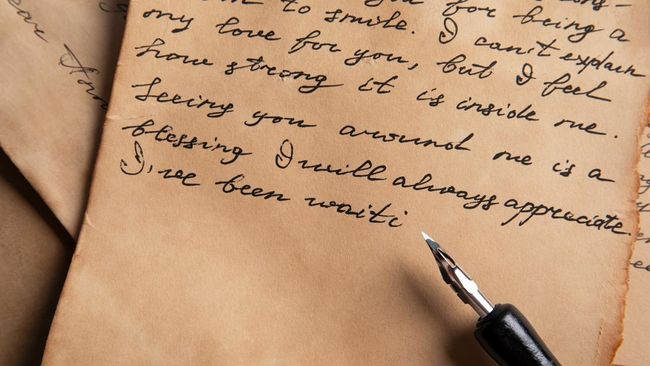 you for being a
to smile. I can't explain
my love for you, but I feel
how strong it is inside me.
Seeing you around me is a
blessing I will always appreciate.
I've been waiti
ear